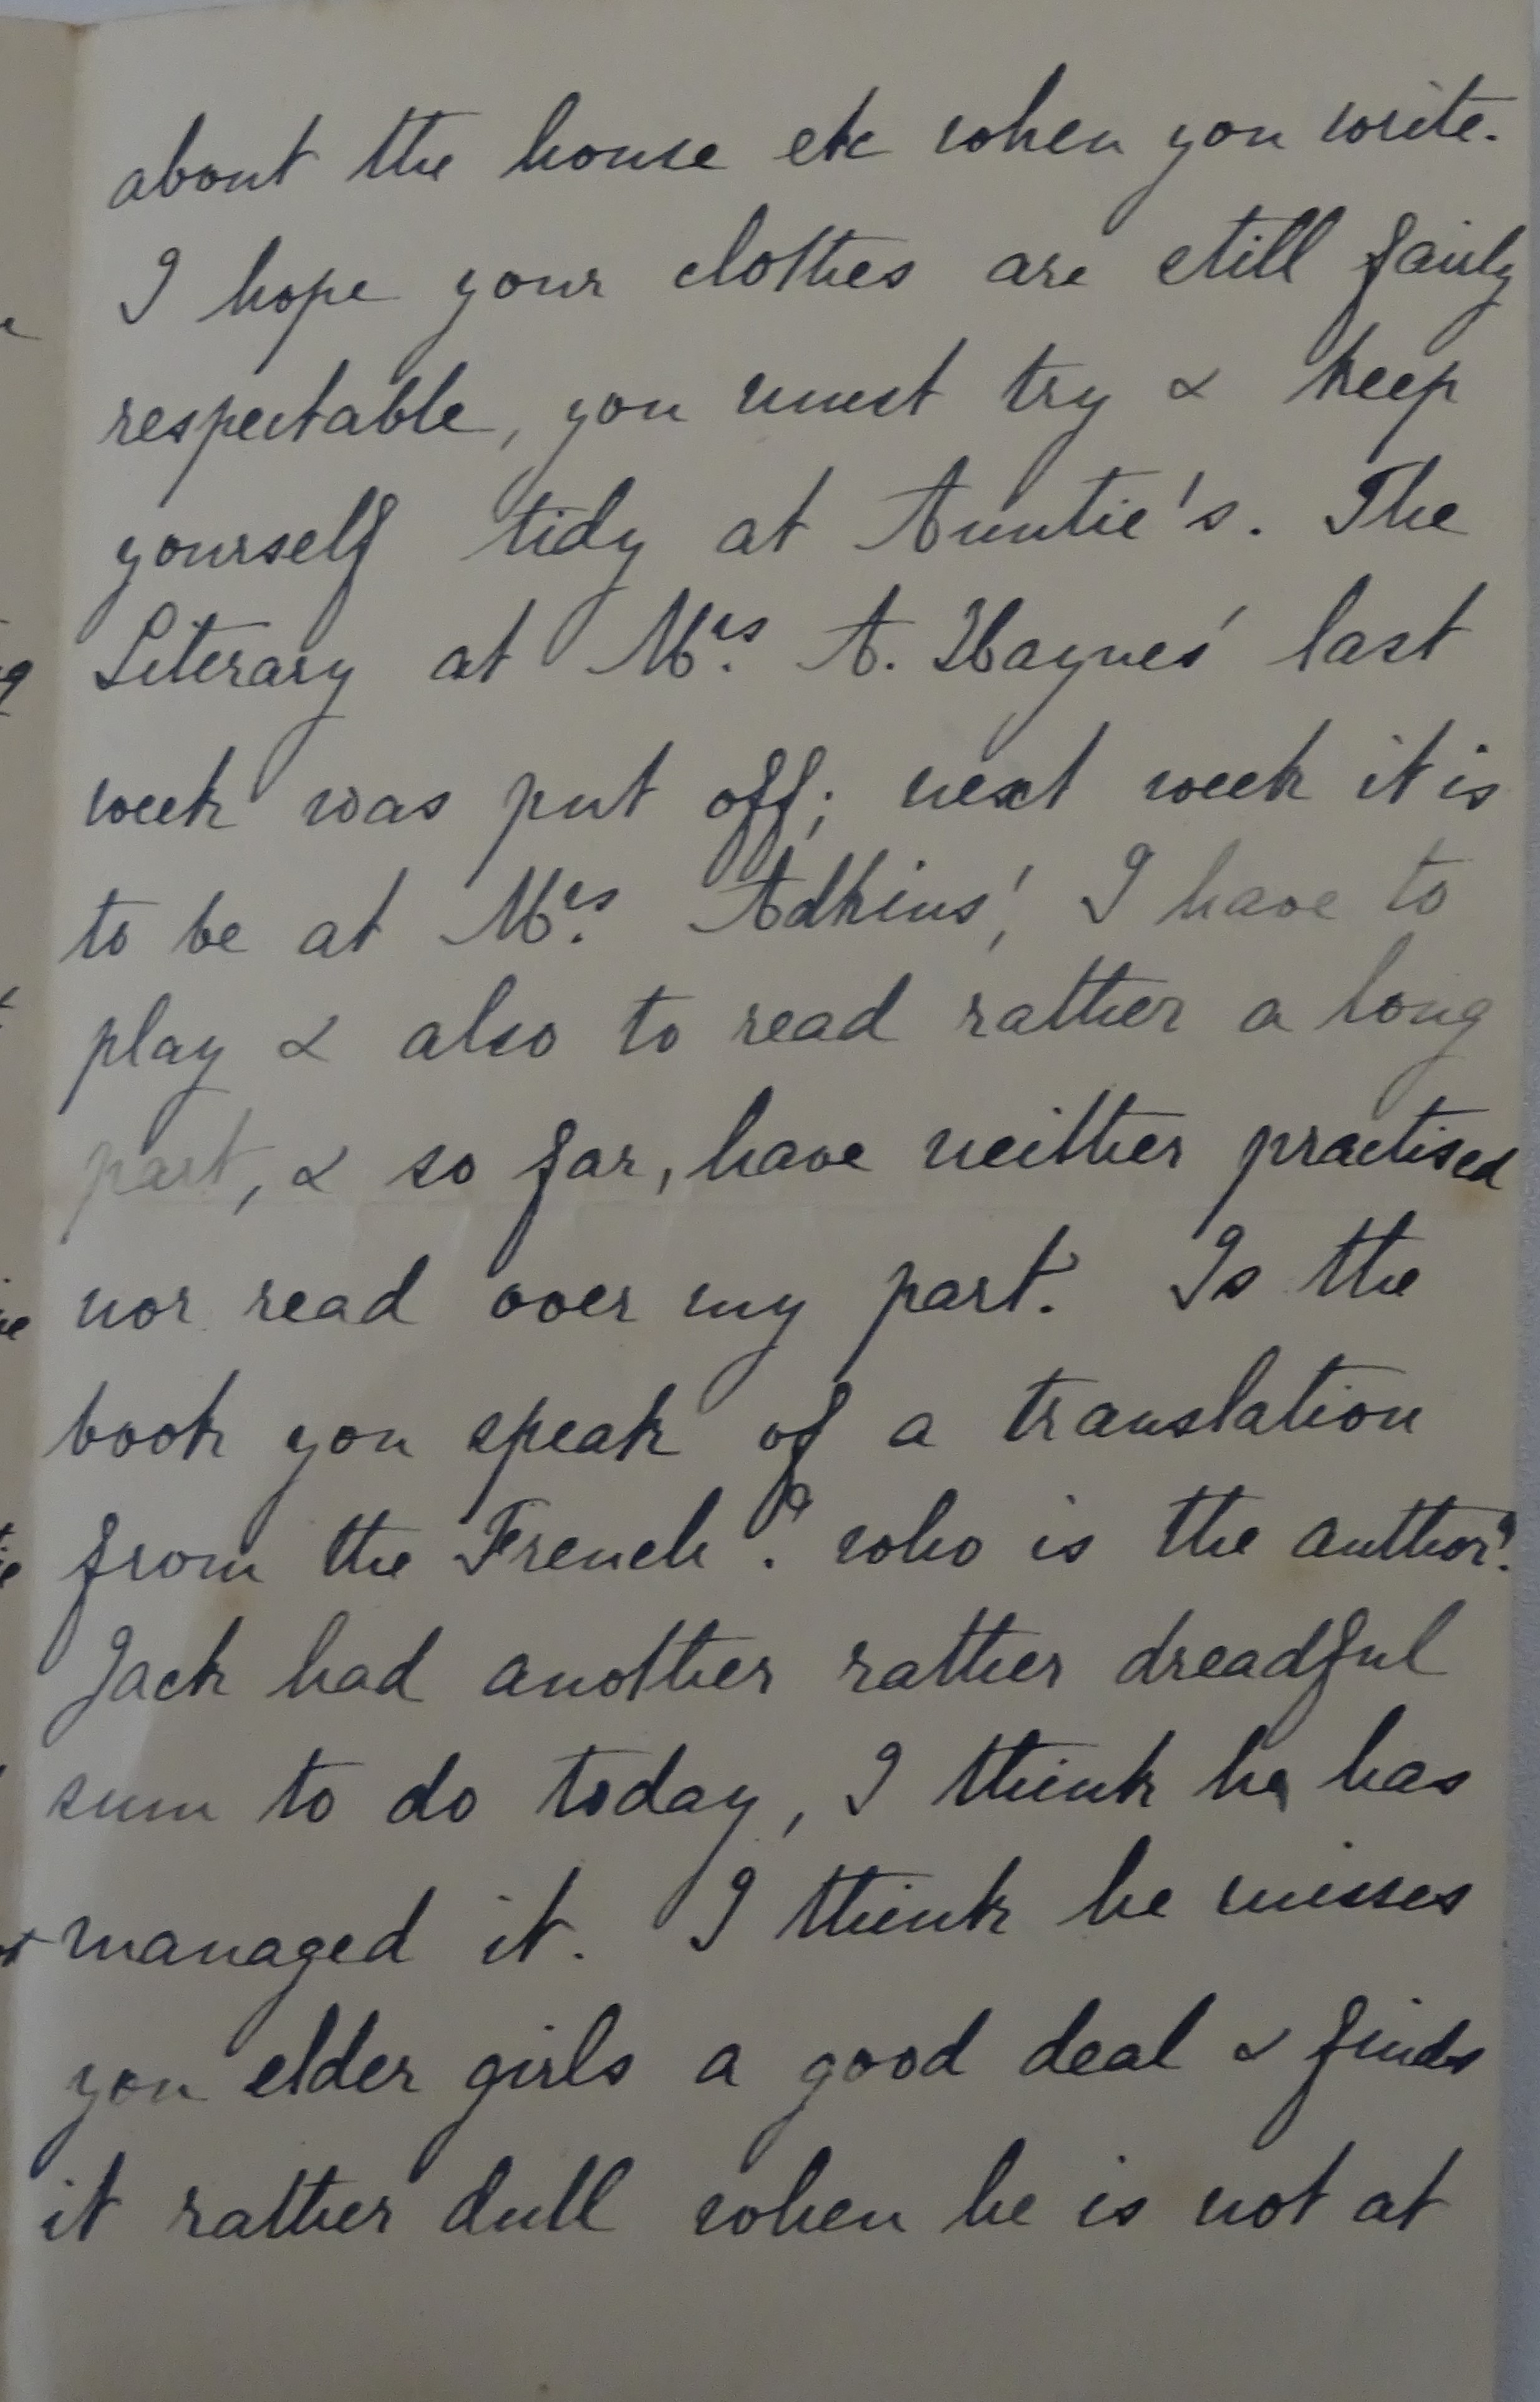 about the house etc when you write.
I hope your clothes are still fairly
respectable, you must try & keep
yourself tidy at Auntie's. The
Literary at Mrs. A. Haynes' last
week was put off; next week it is
to be at Mrs. Adkins', I have to
play & also to read rather a long
part, & so far, have neither practised
nor read over my part. Is the
book you speak of a translation
from the French? who is the author?
Jack had another rather dreadful
sum to do today, I think he has
managed it. I think he misses
you elder girls a good deal & finds
it rather dull when he is not at